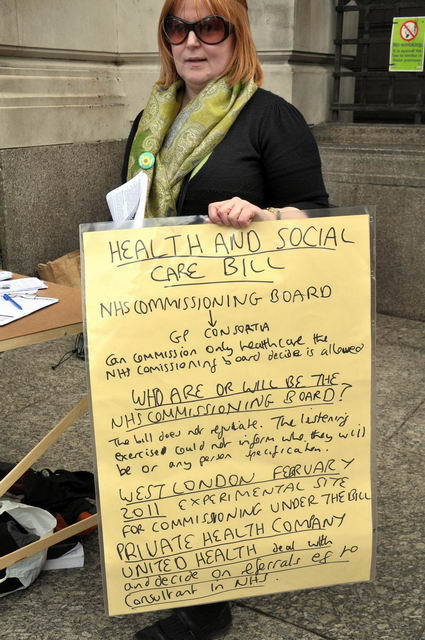 HEALTH AND SOCIAL
CARE BILL
NHS COMMISSIONING BOARD
↓
GP CONSORTIA
Can commission only healthcare the
NHS Comissioning board decides is allowed
WHO ARE OR WILL BE THE
NHS COMMISSIONING BOARD?
The bill does not
The listening
exercised could not inform who they will
be or any person specification.
WEST LONDON FEBRUARY
2011 EXPERIMENTAL SITE
FOR COMMISSIONING UNDER THE BILL
PRIVATE HEALTH COMPANY
UNITED HEALTH deal with
and decide on referrals eg to
Consultant in NHS.
No smoking